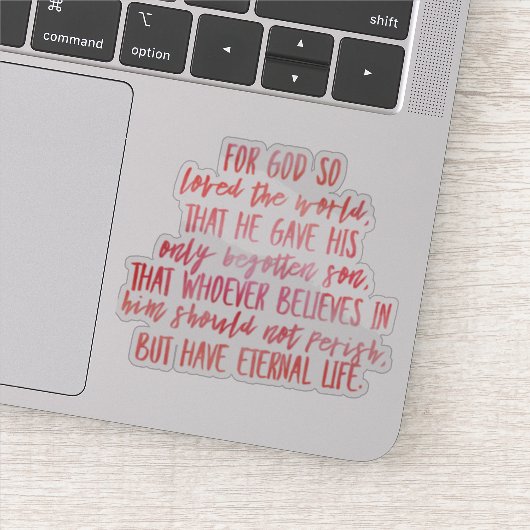 shift
⌘
command
⌥
option
◄
▲
▼
►
FOR GOD SO
loved the world,
THAT HE GAVE HIS
only begotten son,
THAT WHOEVER BELIEVES IN
him should not perish,
BUT HAVE ETERNAL LIFE.